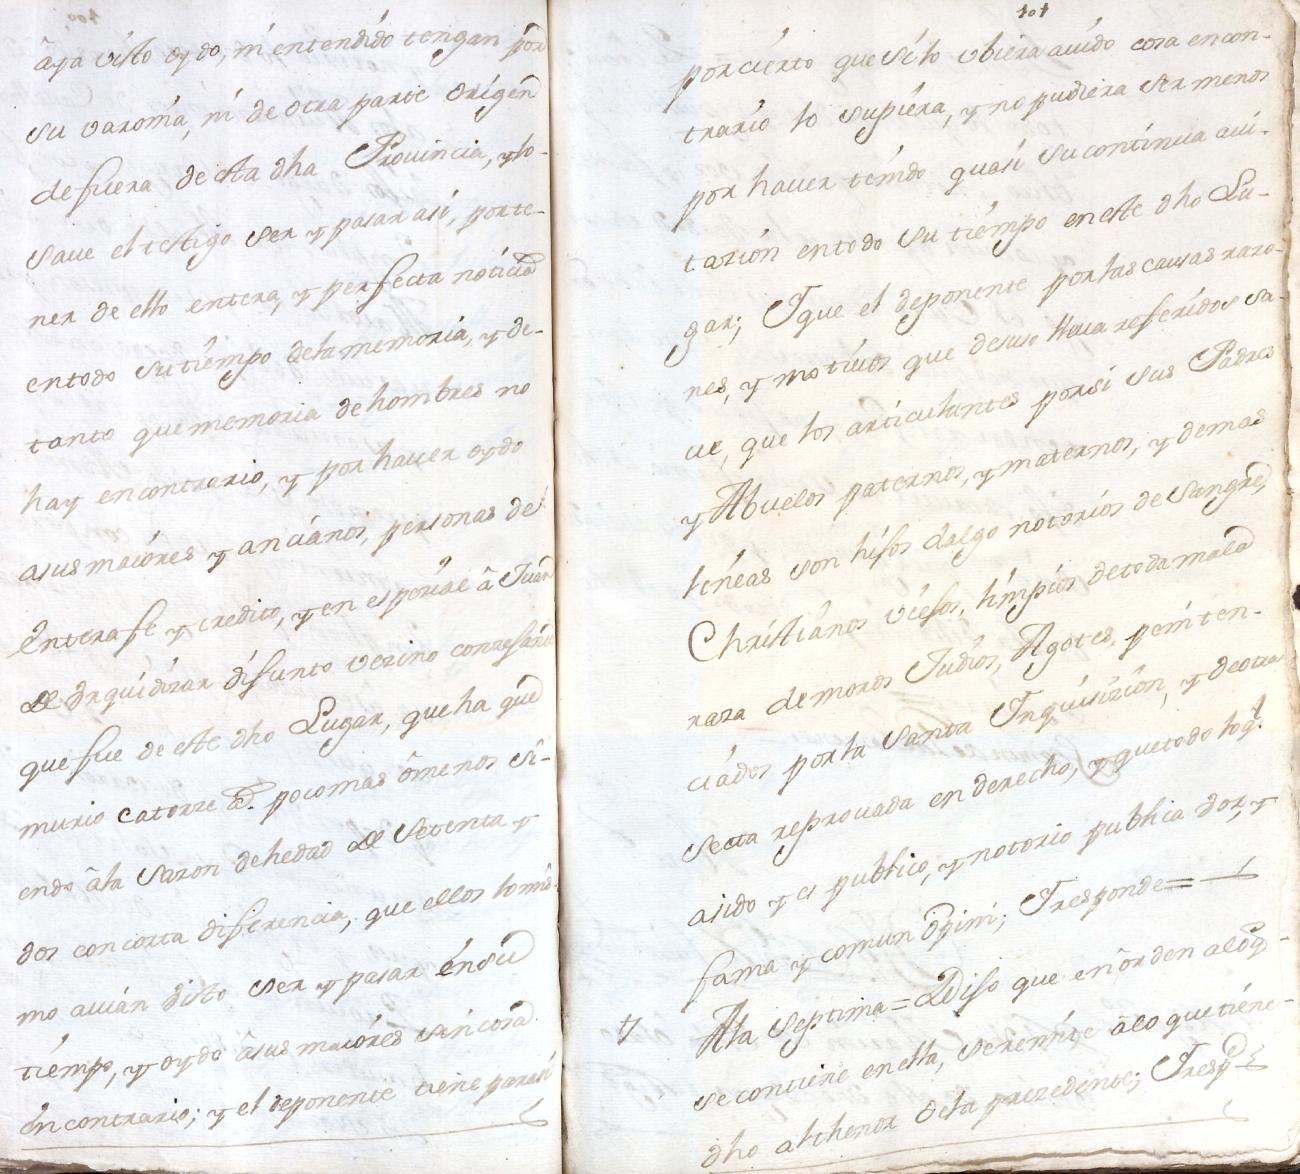 âya visto oydo, ni entendido tengan por
su varonia, ni de otra parte origen
de fuera de esta dha Provincia, y lo
save el testigo ser y pasar asi, por te-
ner de ello entera, y perfecta noticia
en todo su tiempo de la memoria, y de-
tanto que memoria de hombres no
hay en contrario, y por haver oydo
asus maiores y ancianos, personas de
entera fe y credito, y en especial â Juan
de Yrquidizar difunto vezino
que fue de este dho Lugar, que ha que
murio catorze as. poco mas ômenos si-
endo âla sazon de hedad de Setenta y
dos con corta diferencia, que ellos lo mis-
mo avian visto ser y pasar en su
tiempo, y oydo âsus maiores sin cosa
en contrario; y el deponente tiene para si
101
por cierto que si lo ubiera avido cosa en con-
trario lo supiera, y no pudiera ser menos
por haver tenido quasi su continua avi-
tazion en todo su tiempo en este dho Lu-
gar; Y que el deponente por las causas razo-
nes, y motivos que desuso lleva referidos sa-
ve, que los articulantes por si sus Padres
y Abuelos paternos, y maternos, y demas
lineas son hijos dalgo notorios de Sangre,
Christianos viejos, limpios de toda mala
raza de moros Judios, Agotes, peniten-
ciados por la Santa Inquisizion, y de otra
secta reprovada en derecho, y que todo lo q.
a sido y es publico, y notorio publica voz, y
fama y comun opini; Y responde=
7 A la septima = Dijo que en orden alo q-
se contiene en ella, se remite âlo que tiene-
dho al thenor dela precedente; Y resp